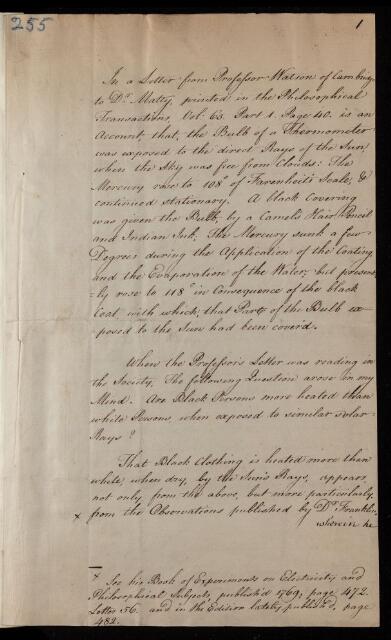 255
1
In a Letter from Professor Watson of Cambridge
to Dr. Maty, printed in the Philosophical
Transactions, Vol. 63. Part 1. Page 40. is an
Account, that, the Bulb of a Thermometer
was exposed to the direct Rays of the Sun
when the Sky was free from Clouds: The
Mercury rose to 108° of Farenheit's Scale; &
continued stationary. A black Covering
was given the Bulb, by a Camels Hair Pencil
and Indian Ink. The Mercury sunk a few
Degrees during the Application of the Coating
and the Evaporation of the Water; but present
=ly rose to 118° in Consequence of the black
Coat with which, that Part of the Bulb ex=
posed to the Sun had been cover'd.
When the Professor's Letter was reading in
the Society, The following Question arose in my
Mind. Are Black Persons more heated than
white Persons, when exposed to similar solar
Rays?
That Black Clothing is heated more than
white, when dry, by the Sun's Rays, appears
not only from the above, but more particularly
× from the Observations published by Dr. Franklin
wherein he
× See his Book of Experiments on Electricity and
Philosophical Subjects, publish'd 1769, page 472.
Letter 56. and in the Edition lately publish'd, page
482.